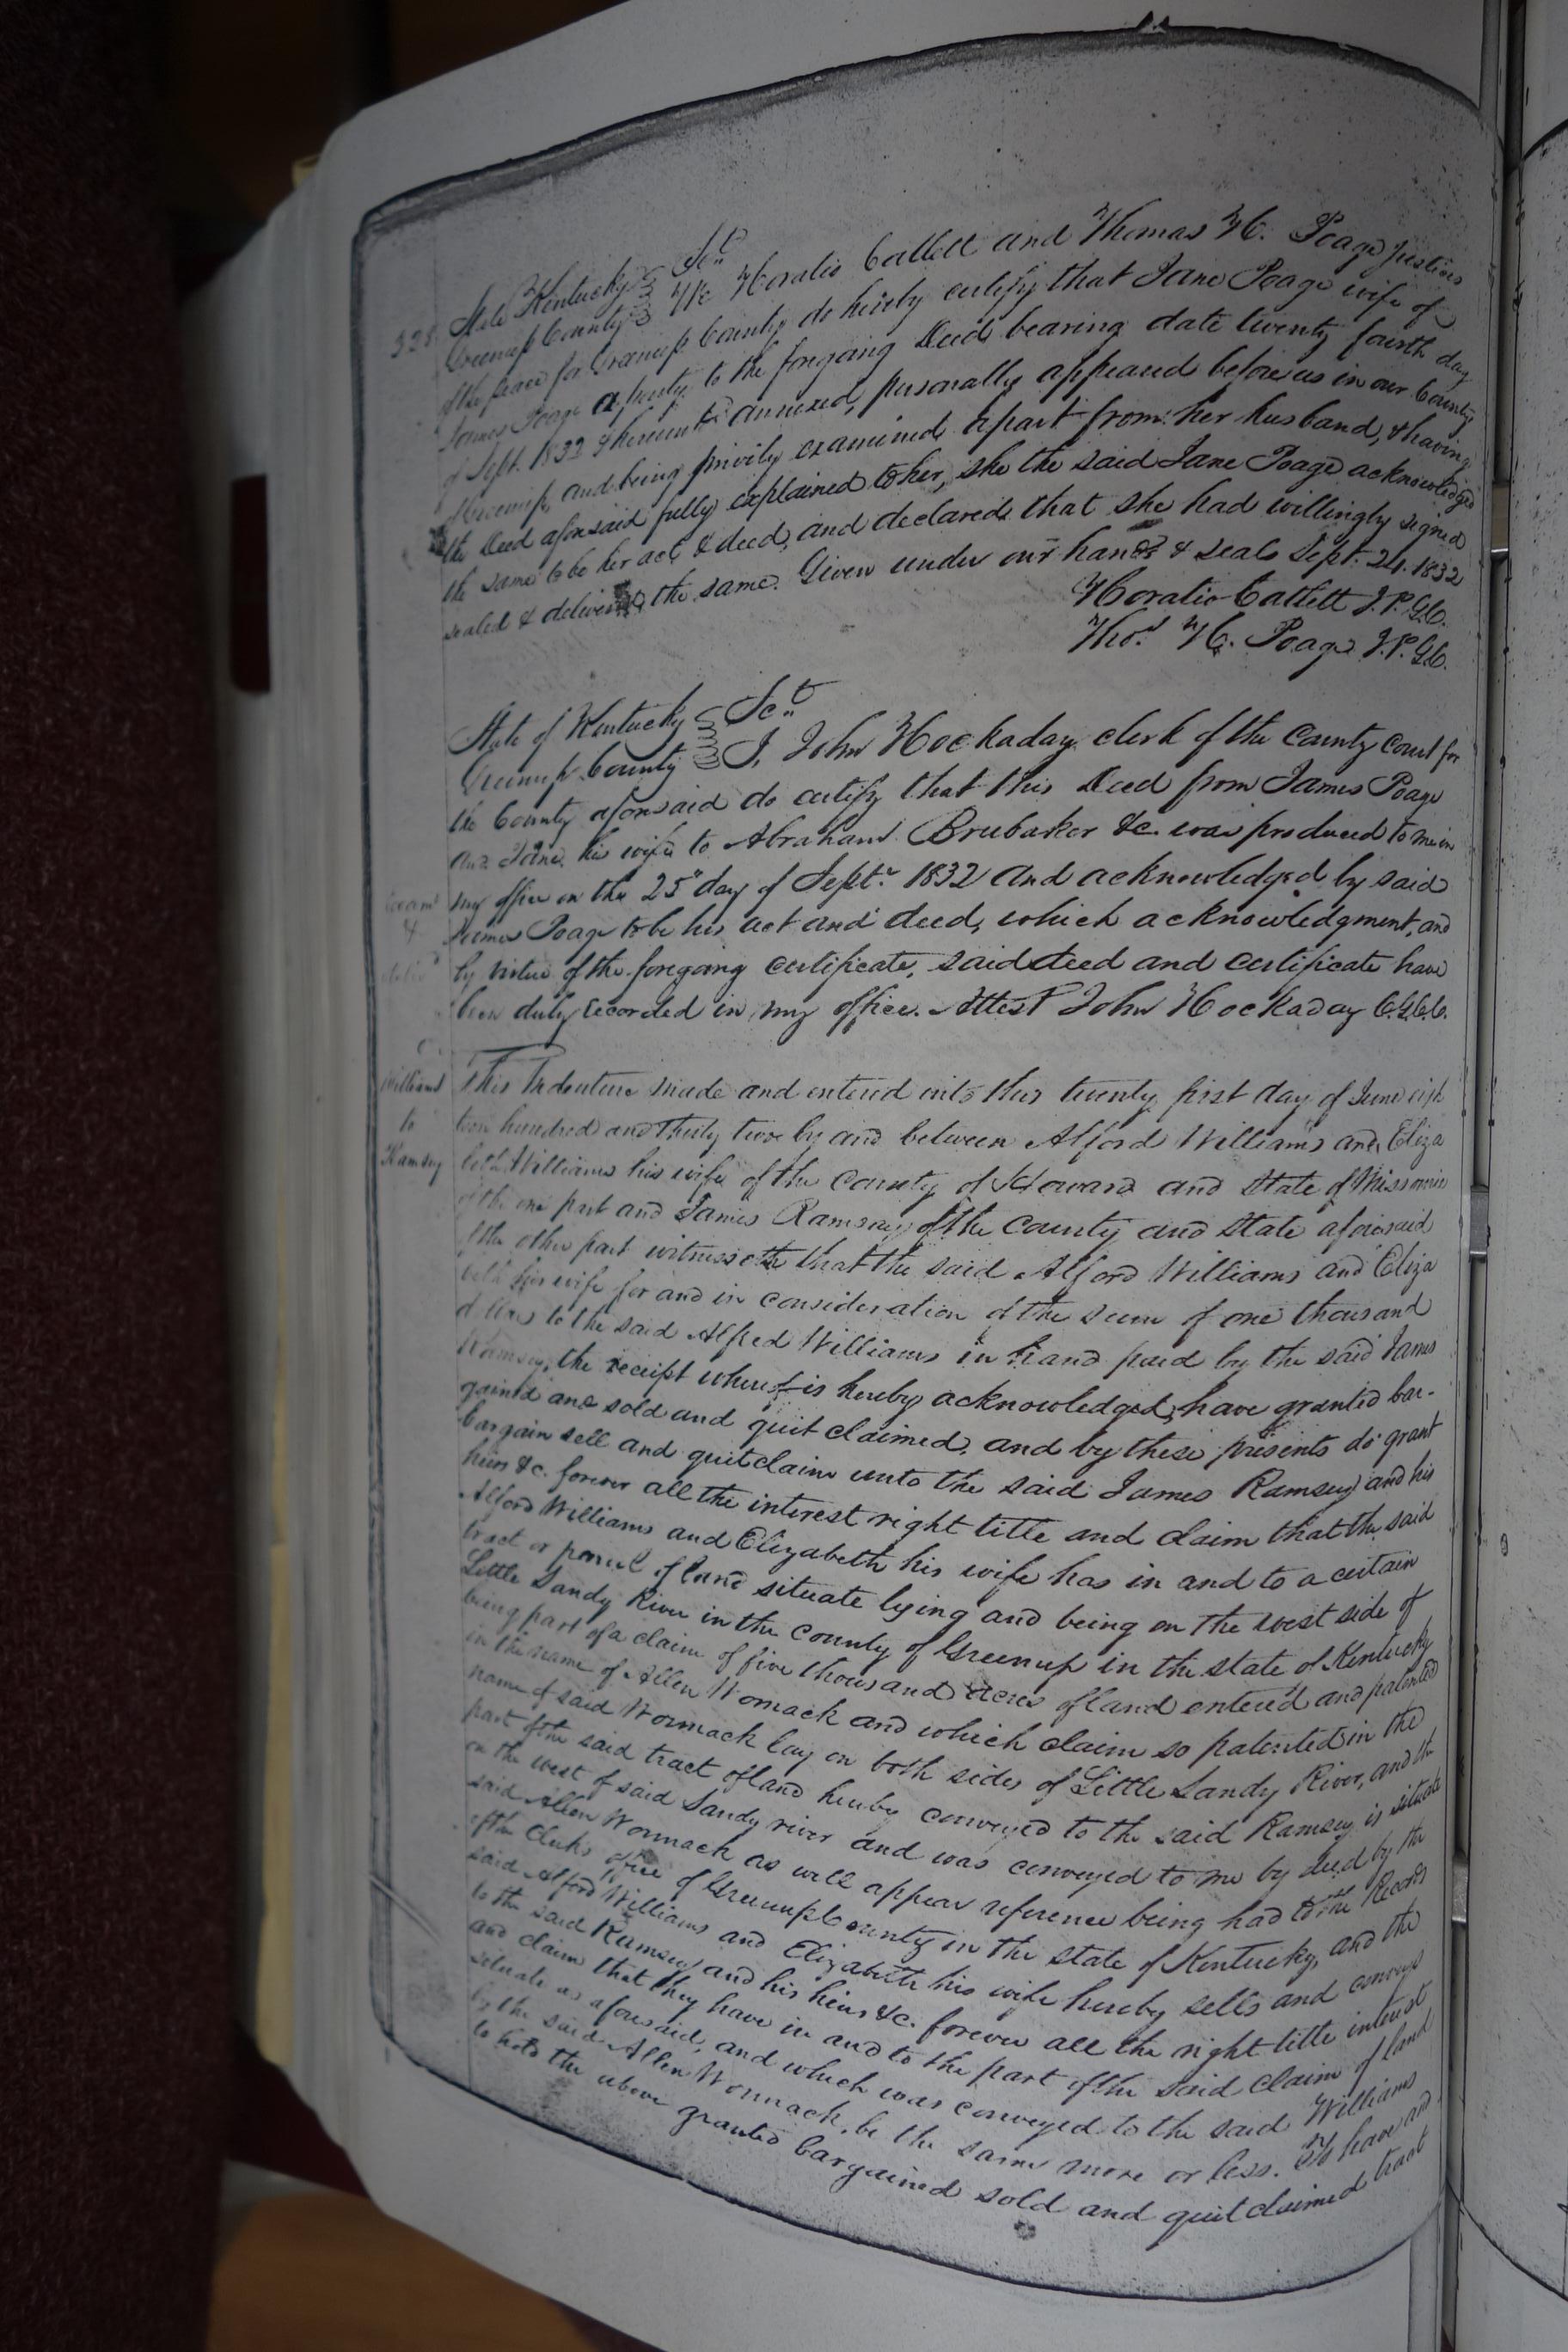 328
State Kentucky } Sct
Greenup County } We Horatio Catlett and Thomas H. Poage justices
of the peace for Greenup County do hereby certify that Jane Poage wife of
James Poage a party to the foregoing Deed bearing date twenty fourth day
of Sept. 1832 & hereunto annexed, personally appeared before us in our County
of Greenup, and being privily examined apart from her husband, & having
the Deed aforesaid fully explained to her, she the said Jane Poage acknowledged
the same to be her act & deed, and declared that she had willingly signed
sealed & delivered the same. Given under our hands & seals Sept. 24. 1832
Horatio Catlett J.P.G.C.
Thos. H. Poage J.P.G.C.
State of Kentucky } Sct
Greenup County } I, John Hockaday clerk of the County Court for
the County aforesaid do certify that this Deed from James Poage
and Jane his wife to Abraham Brubaker &c. was produced to me in
my office on the 25" day of Septr. 1832 and acknowledged by said
James Poage to be his act and deed, which acknowledgment, and
by virtue of the foregoing certificate, said deed and certificate have
been duly recorded in my office. Attest John Hockaday C.G.C.C.
Williams
to
Ramsey
This Indenture made and entered into this twenty first day of June eigh
teen hundred and thirty two by and between Alford Williams and Eliza
beth Williams his wife of the County of Howard and State of Missouri
of the one part and James Ramsey of the County and State aforesaid
of the other part witnesseth that the said Alford Williams and Eliza
beth his wife for and in consideration of the sum of one thousand
dollars to the said Alfred Williams in hand paid by the said James
Ramsey, the receipt whereof is hereby acknowledged, have granted bar-
gained and sold and quit claimed, and by these presents do grant
bargain sell and quitclaim unto the said James Ramsey and his
heirs &c. forever all the interest right title and claim that the said
Alford Williams and Elizabeth his wife has in and to a certain
tract or parcel of land situate lying and being on the west side of
Little Sandy River in the county of Greenup in the state of Kentucky
being part of a claim of five thousand acres of land entered and patented
in the name of Allen Womack and which claim so patented in the
name of said Wommack lay on both sides of Little Sandy River, and the
part of the said tract of land hereby conveyed to the said Ramsey is situate
on the west of said Sandy river and was conveyed to me by deed by the
said Allen Wommack as will appear reference being had to the Records
of the Clerks office of Greenup County in the state of Kentucky, and the
said Alford Williams and Elizabeth his wife hereby sells and conveys
to the said Ramsey and his heirs &c. forever all the right title interest
and claim that they have in and to the part of the said claim of land
situate as aforesaid, and which was conveyed to the said Williams
by the said Allen Wommack, be the same more or less. To have and
to hold the above granted bargained sold and quit claimed tract